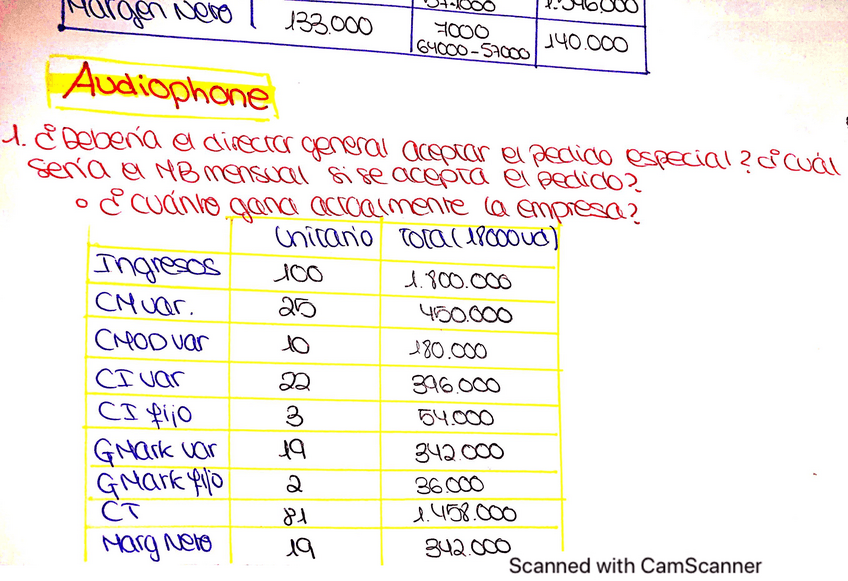 Margen Neto 133.000 7000 140.000
64000-57000
Audiophone
1. ¿Debería el director general aceptar el pedido especial? ¿cuál
sería el MB mensual si se acepta el pedido?
o ¿cuánto gana actualmente la empresa?
Unitario Total (18000ud)
Ingresos 100 1.800.000
CM var. 25 450.000
CMOD var 10 180.000
CI var 22 396.000
CI fijo 3 54.000
GMark var 19 342.000
GMark fijo 2 36.000
CT 81 1.458.000
Marg Neto 19 342.000
Scanned with CamScanner